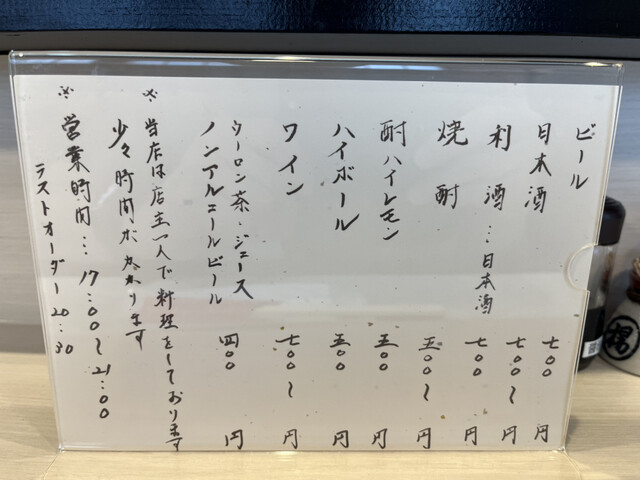 ビール 七〇〇 円
日本酒 七〇〇〜 円
利酒…日本酒 七〇〇 円
焼酎 五〇〇〜 円
酎ハイレモン 五〇〇 円
ハイボール 五〇〇 円
ワイン 七〇〇〜 円
ウーロン茶・ジュース
ノンアルコールビール 四〇〇 円
※ 当店は店主一人で料理をしております
少々時間がかかります
※ 営業時間…17:00〜21:00
ラストオーダー20:30